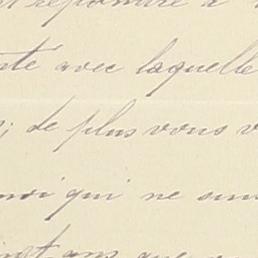 répondre à
te avec laquelle
; de plus vous v
moi qui ne suis
ans que